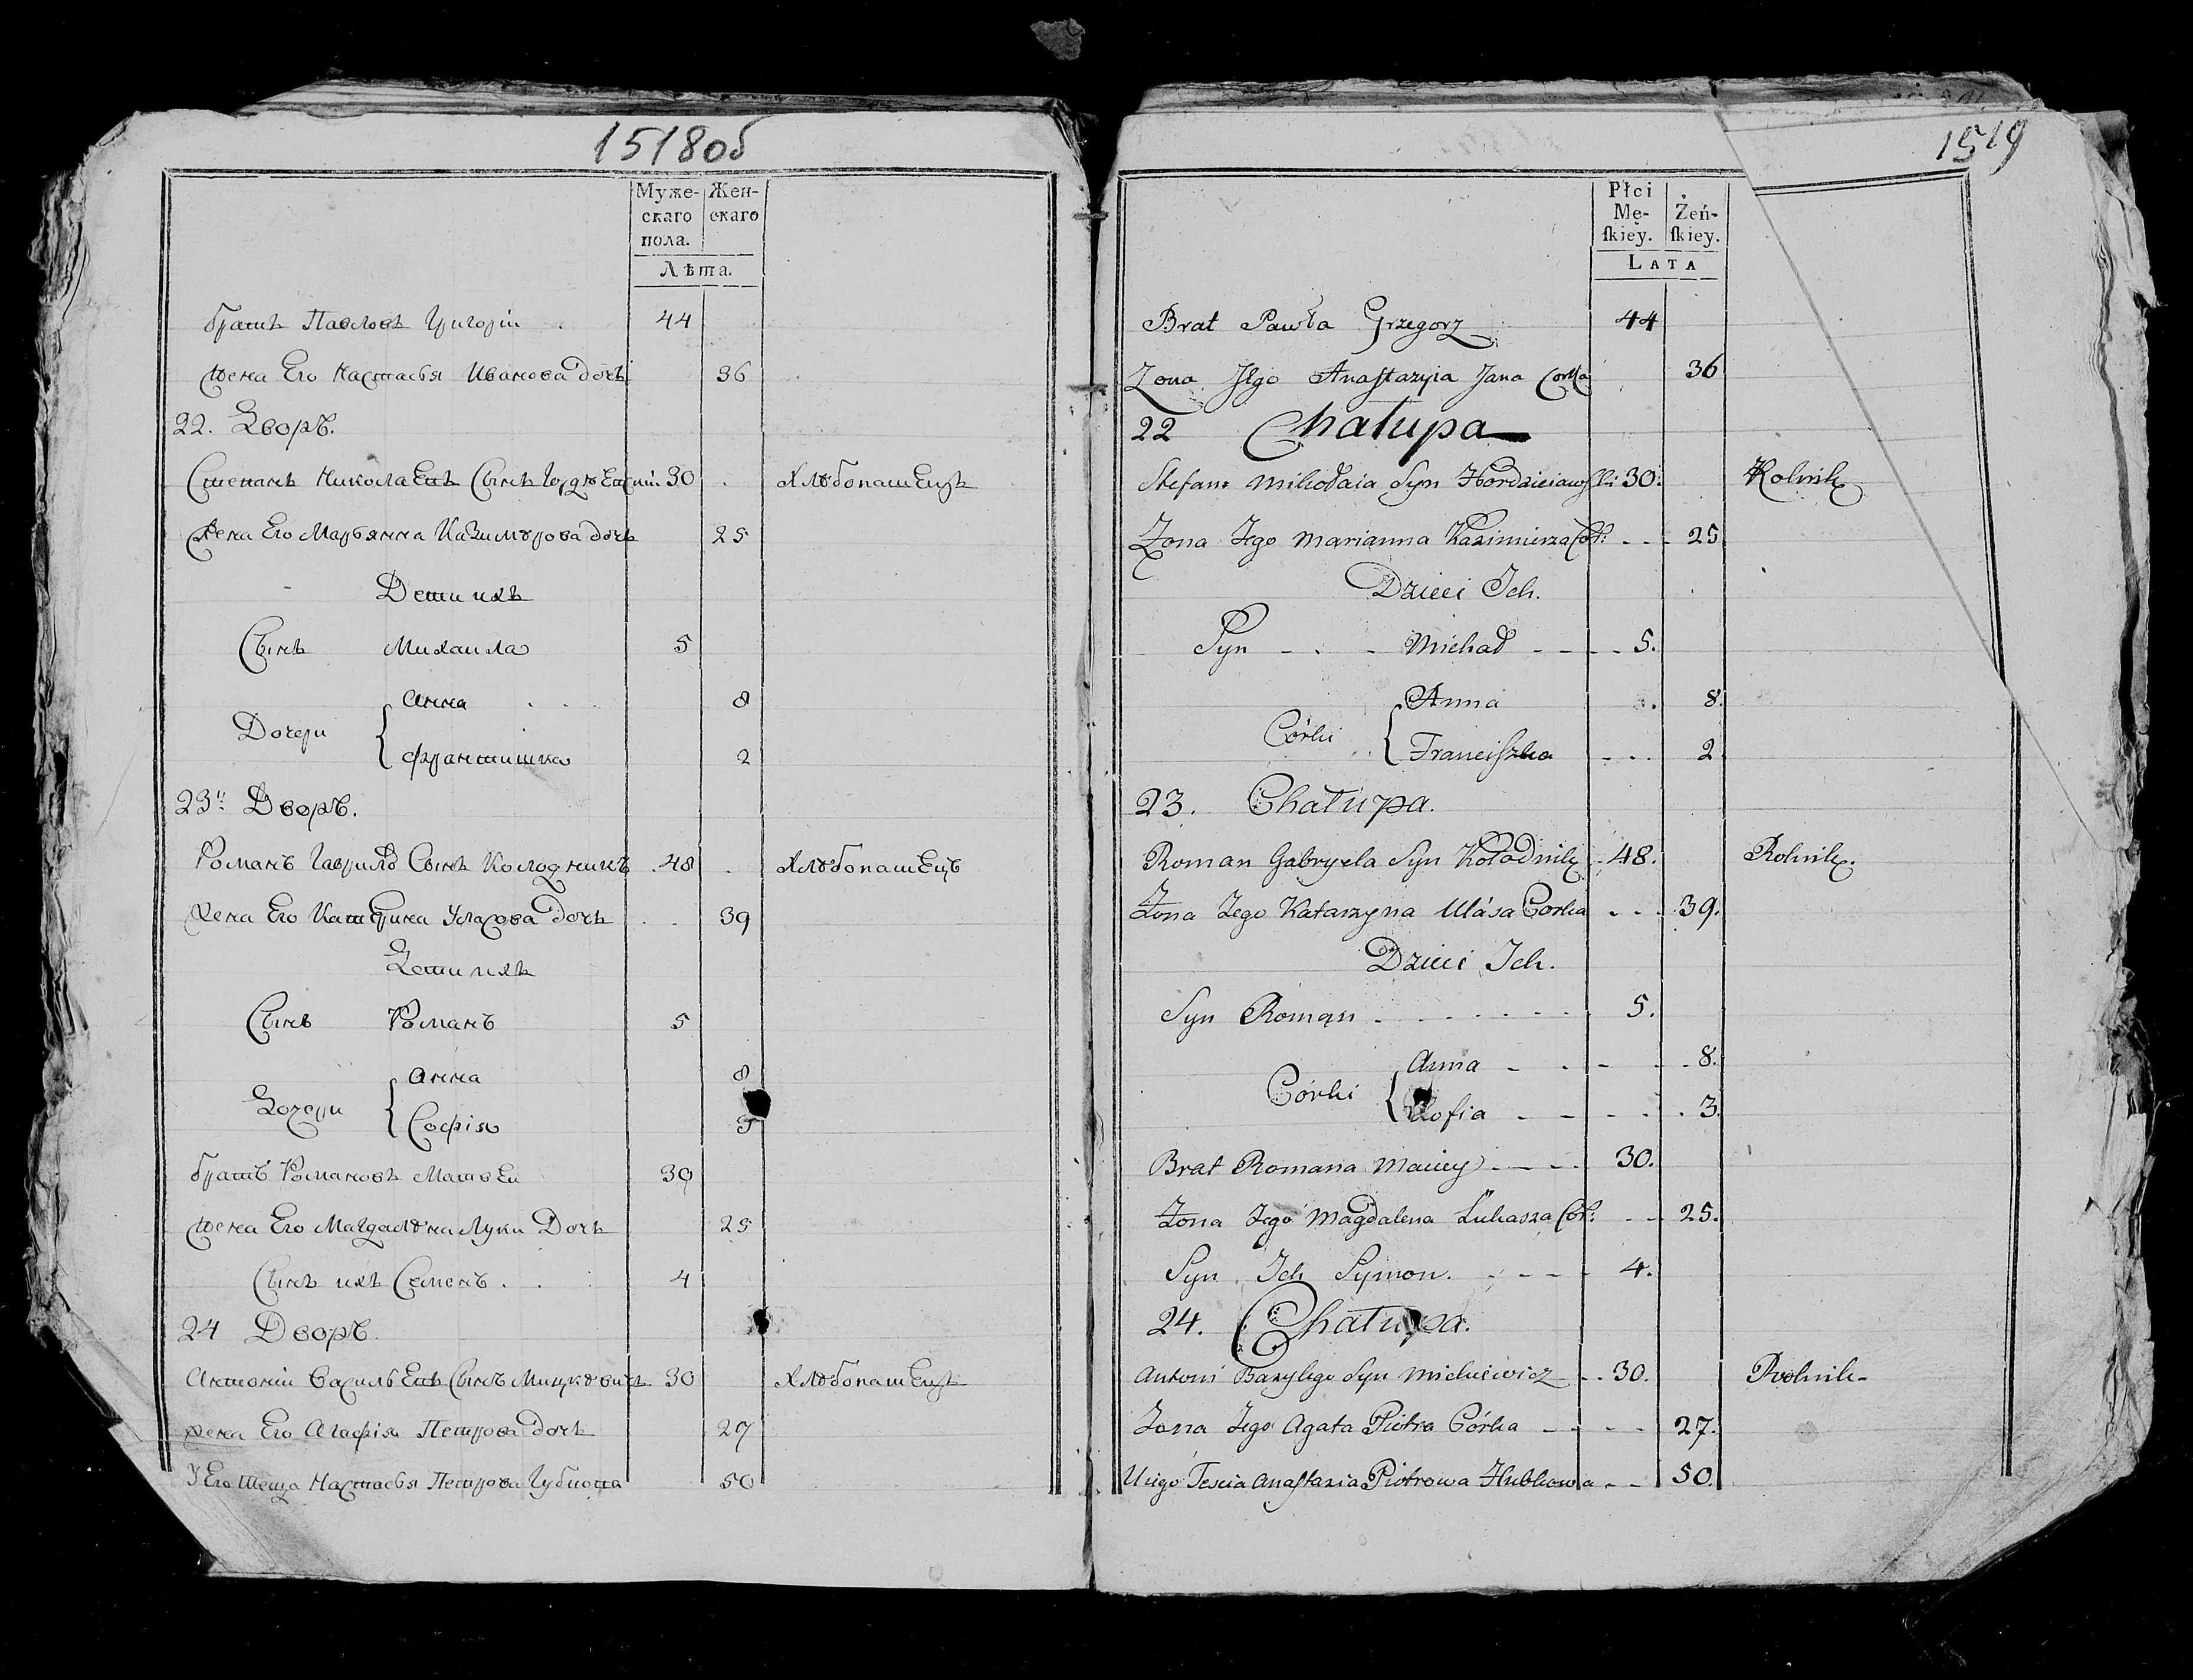 1518об
Муже-
скаго
пола.
Жен-
скаго
Лѣта.
братъ Павловъ Григорій 44
жена Его Настасья Иванова дочь 36
22. Дворъ.
Степанъ Николаевъ Сынъ 30 Хлѣбопашецъ
Жена Его Марьянна Казимѣрова дочь 25
Дети ихъ
Сынъ Михаила 5
Дочери { Анна 8
Франтишка 2
23й Дворъ.
Романъ Гаврилѡ Сынъ Колодникъ 48 Хлѣбопашецъ
Жена Его Катерина Уласова Дочь 39
Дети ихъ
Сынъ Романъ 5
Дочери { Анна 8
Софія
братъ Романовъ Матвеи 30
жена Его Магдалѣна Луки Дочь 25
Сынъ ихъ Семенъ 4
24 Дворъ.
Антоній Васильевъ Сынъ Мицкѣвичъ 30 Хлѣбопашецъ
жена Его Агафія Петрова дочь 27
У Его теща Настасья Петрова 50
1519
Płci
Mę-
ſkiey.
Żeń-
ſkiey.
LATA
Brat Pawła Grzegorz 44
Zona Jego Anastazyia Jana Corka 36
22 Chałupa
Stefan Mikołaia Syn 30. Rolnik
Zona Jego Marianna Kazimierza Cór: 25
Dzieci Ich.
Syn Michał 5.
Córki { Anna 8.
Franciszka 2
23. Chałupa.
Roman Gabryela Syn Kołodnik 48. Rolnik.
Żona Jego Katarzyna Ułasa Corka 39.
Dzieci Ich.
Syn Roman 5.
Córki { Anna 8.
Zofia 3
Brat Romana Maciey 30.
Żona Jego Magdalena Łukasza Cór: 25.
Syn Ich Symon. 4.
24. Chałupa.
Antoni Bazylego Syn Mickiewicz 30. Rolnik
Zona Jego Agata Piotra Córka 27.
U iego Tescia Anastazia Piotrowa Hubkowa 50.